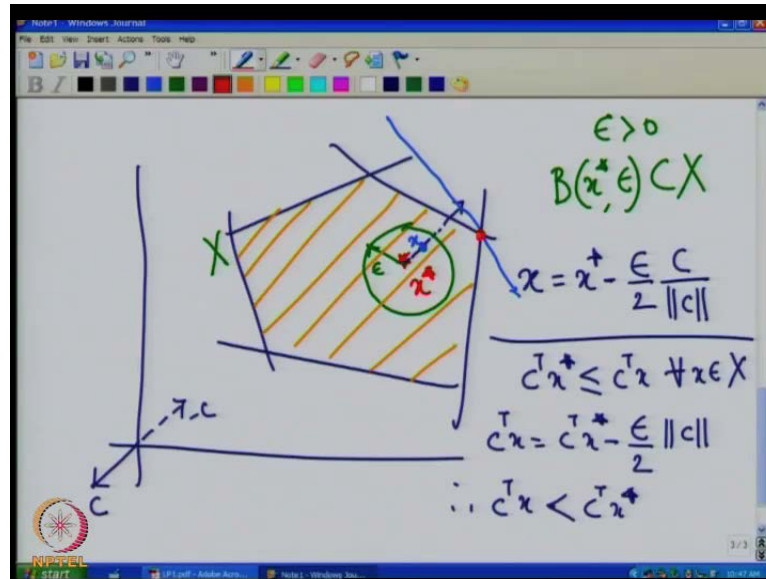 Note1 - Windows Journal
File Edit View Insert Actions Tools Help
B I
ϵ > 0
B(x*, ϵ) ⊂ X
X
x
ϵ
x*
x = x* - ϵ/2 C/||C||
C^T x* ≤ C^T x ∀ x ∈ X
C^T x = C^T x* - ϵ/2 ||C||
∴ C^T x < C^T x*
-C
C
3/3
NPTEL
start LP1.pdf - Adobe Acro... Note1 - Windows Jou... 10:47 AM